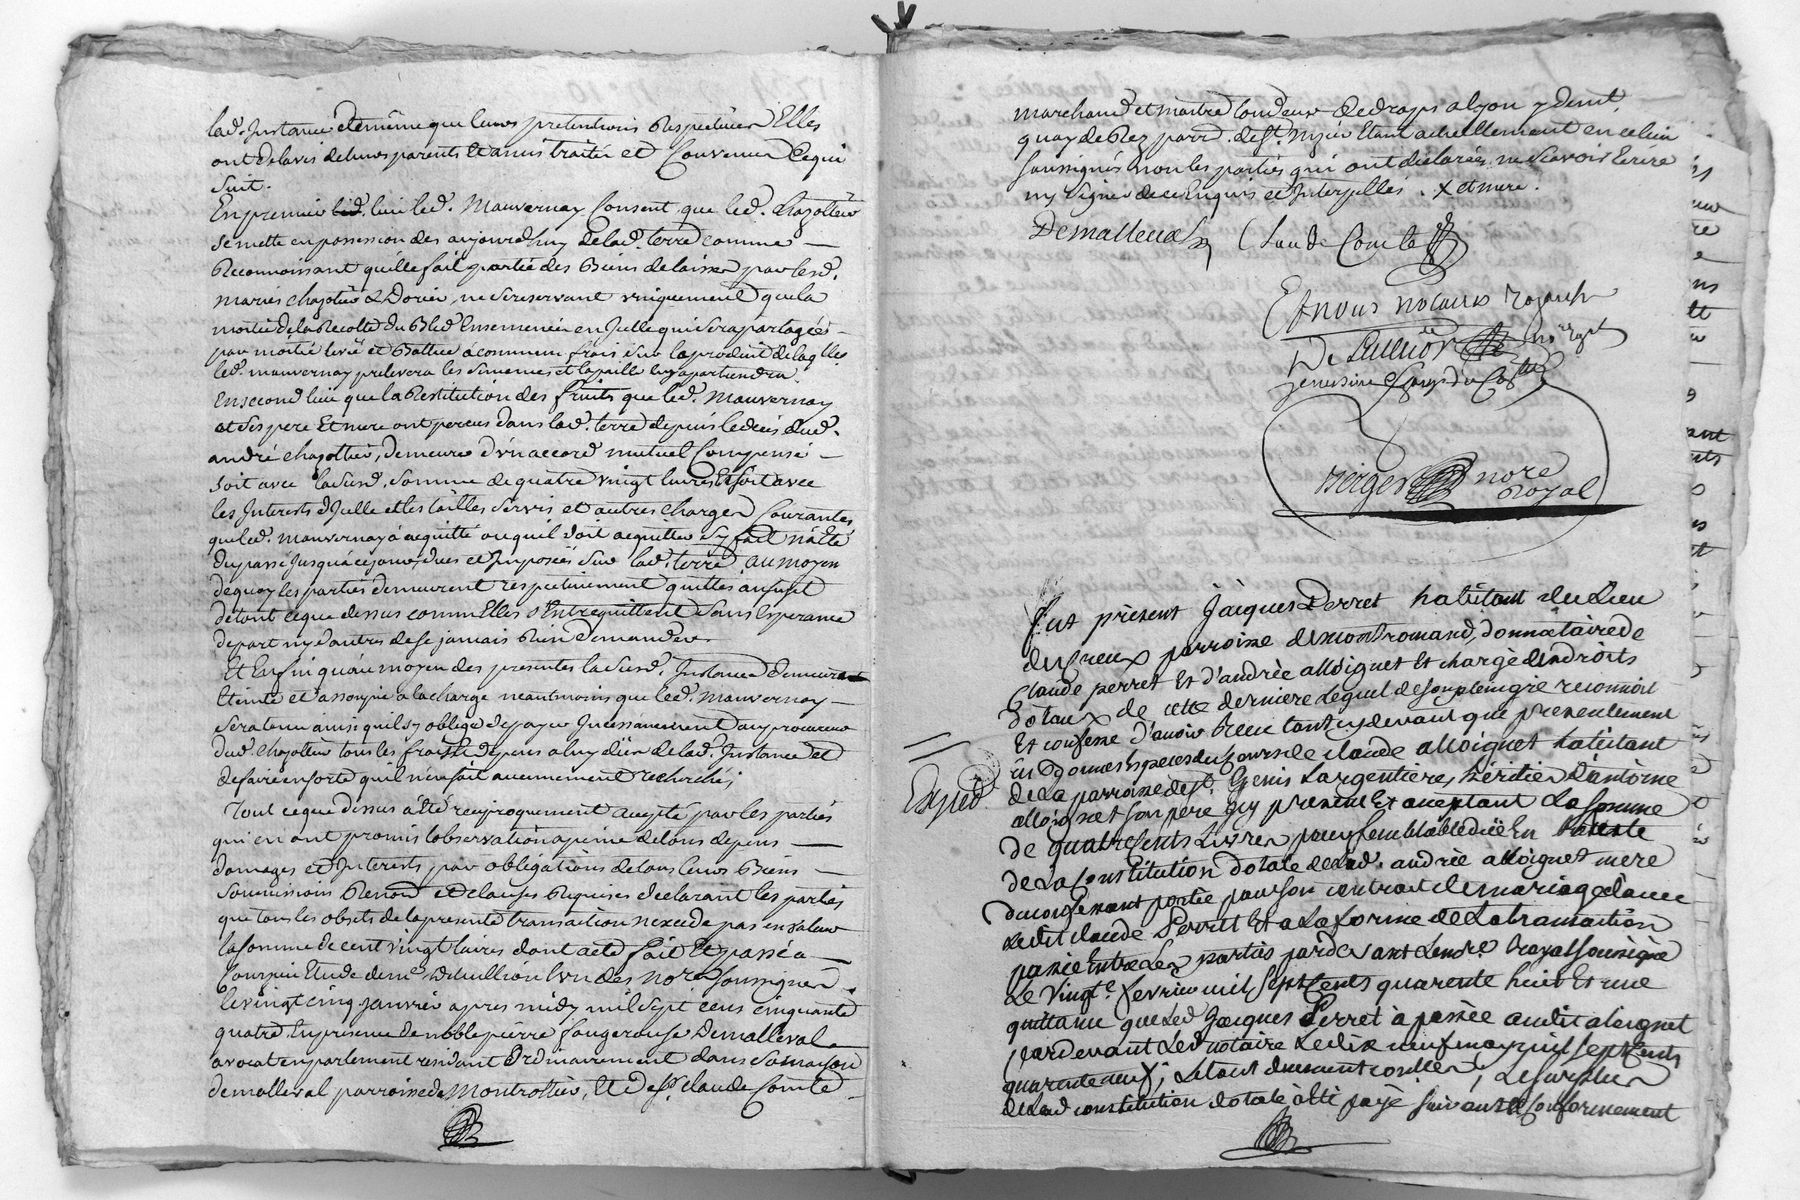 lad. Instance et même que leurs pretentions Respectives Elles
ont de lavis de leurs parents Et amis traitté et Convenu Ce qui
suit.
En premier lieu led. Mauvernay Consent que led. chazottier
se mette en possession des aujourd'huy de lad. terre comme
Reconnoissant qu'elle fait partie des Biens delaissés par lesd.
mariés chazottier & Dorier, ne se reservant uniquement que la
moitié de la Recolte du Bled Ensemencé en Icelle qui sera partagée
par moitié levée et Battue a commun frais sur le produit de laqlle
led. mauvernay prelevera les semences et la paille luy apartiendra.
En second lieu que la Restitution des fruits que led. Mauvernay
et ses pere Et mere ont percus dans lad. terre depuis le deces dud.
andré chazottier, demeure d'un accord mutuel Compensé
soit avec la susd. somme de quatre vingt livres Et soit avec
les Interests d'Icelle et les tailles servis et autres charges Courantes
que led. Mauvernay a acquitté ou quil doit acquitter sy fait n'a été
du passé jusqu'a ce jour, dues et Imposées sur lad. terre, au moyen
de quoy les parties demeurent respectivement quittes au sujet
de tout ce que dessus comm'Elles s'Entrequittent sans Esperance
de part ny d'autres de se jamais Rien demander.
Et Enfin qu'au moyen des presentes la susd. Instance demeurera
Eteinte et assoupie a la charge neantmoins que led. Mauvernay
sera tenu ainsi quil s'y oblige de payer Incessamment au procureur
dud. chazottier tous les fraix & depens a luy dûs de lad. Instance et
de faire ensorte quil n'en soit aucunement recherché;
Tout ce que dessus a été reciproquement accepté par les parties
qui en ont promis l'observation a peine de tous depens
domages et Interests, par obligations de tous leurs Biens
soumissions Renon et clauses Requises declarant les parties
que tous les objets de la presente transaction n'excede pas en valeur
la somme de cent vingt livres dont acte fait Et passé a
Etude de me Lun des nores soussignés
le vingt cinq janvier apres midy mil sept cens cinquante
quatre En presence de noble pierre fougerouse Demalleval
avocat en parlement residant Ordinairement dans sa maison
de malleval parroisse de Montrottier, Et de sr. claude Comte
marchand et maitre tondeur de draps a lyon y demt.
quay de Retz parr. de st. nizier Etant actuellement en ce lieu
soussignés non les parties qui ont declarées ne scavoir Ecrire
ny signer de ce Enquis et Interpellés. X et mere.
Demalleval Claude Comte
Et nous notaires royaux
Berger nore
Royal
Fut présent Jacques Perret habitant du Lieu
du Creux parroisse de montromand, donnataire de
Claude perret Et d'andrée alloignet Et chargé des droits
dotaux de cette derniere Lequel de son plein gré reconnoit
Et confesse d'avoir Receu tant cy devant que presentement
en bonnes Especes du Cours de claude alloignet habitant
de La parroisse de st. Genis Largentiere, héritier d'antoine
Expied
alloignet son pere Icy present Et acceptant La somme
de quatre cents Livres pour semblable düe En Reste
de La Constitution dotale de lad. andrée alloignet mere
du confessant portée par son contrat de mariage avec
Ledit claude Perret Et a La forme de La transaction
passée Entre Les parties pardevant Le nore. Royal soussigné
Le vingt fevrier mil sept cents quarente huit Et une
quittance que led Jacques Perret à passée audit aloignet
pardevant Led notaire Le dix neuf may mil sept cents
quarente neuf; Letout duement controllé, Le surplus
de Lad constitution dotale a été payé suivant & Conformement